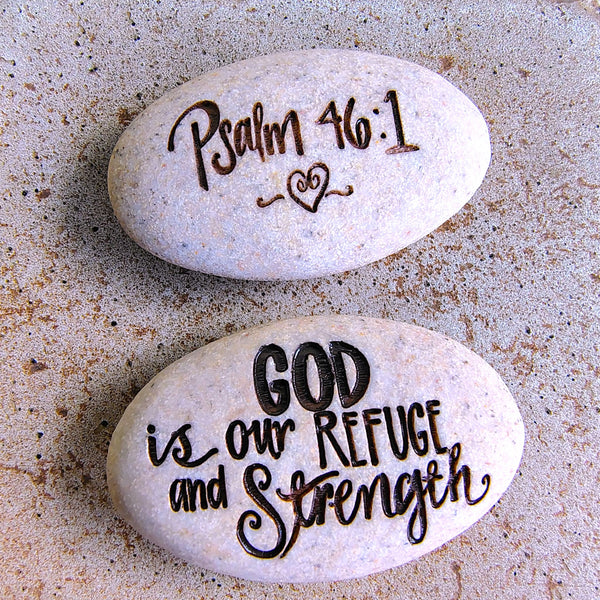 Psalm 46:1
GOD
is our REFUGE
and Strength